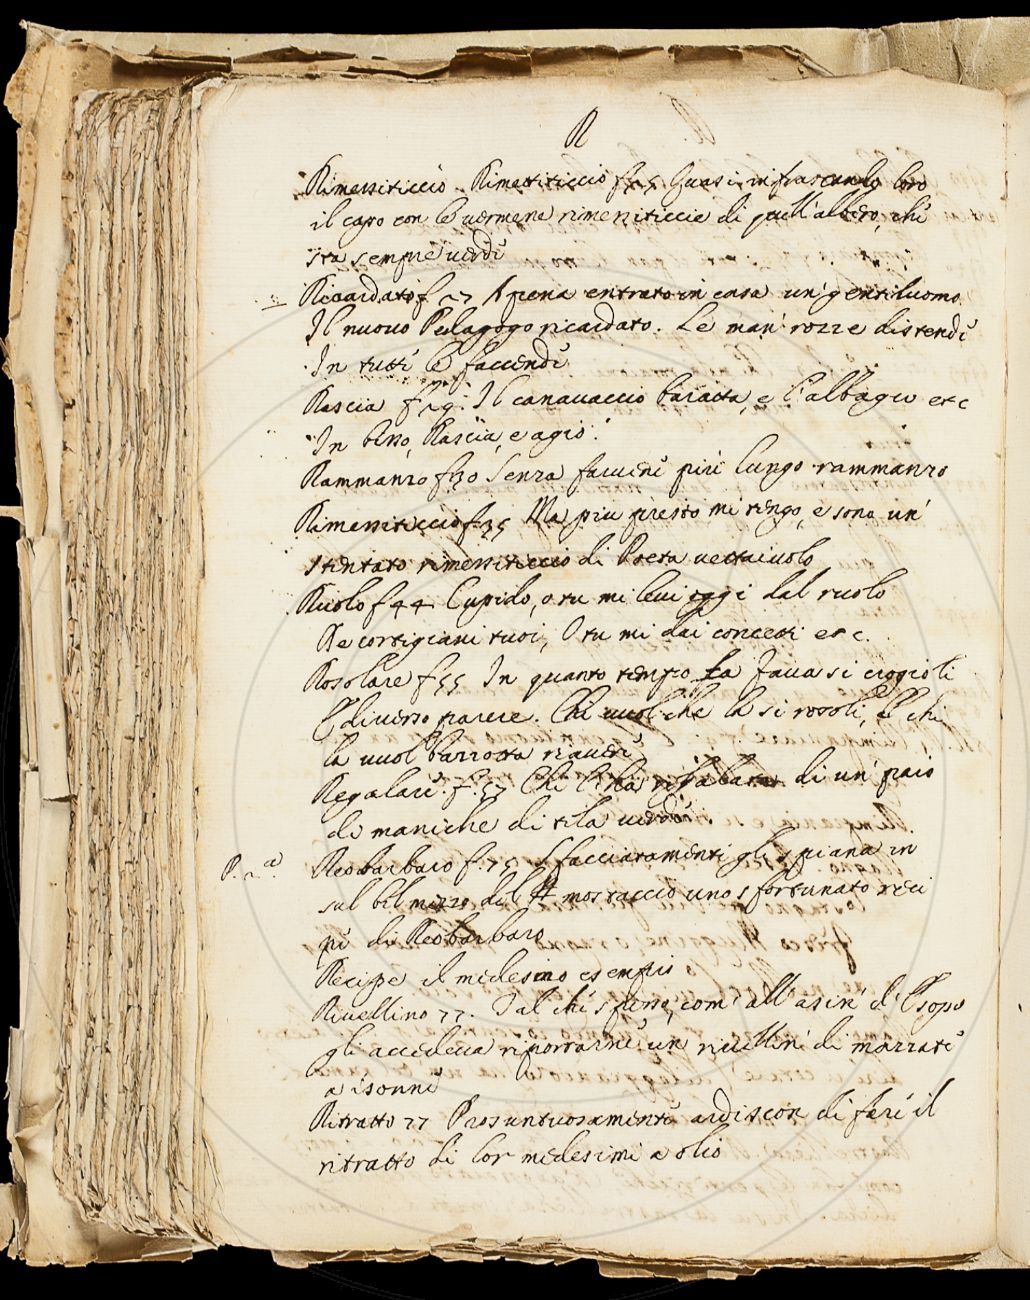 R
Rimessiticcio. Rimettiticcio f. 25 Quasi infrascando loro
il capo con le vermene rimessiticcie di quell'albero, che
sta sempre verde
Ricardato f. 27 Apena entrato in casa un gentiluomo
Il nuovo Pedagogo ricardato. Le man' rozze distende
In tutte le faccende
Rascia f. 29. Il canavaccio baratta, e l'albagio etc
In bisso, Rascia, e agio.
Rammanzo f. 30 Senza farvene più lungo rammanzo
Rimessiticcio f. 35 Ma piu presto mi tengo, e sono un'
stentato rimessiticcio di Poeta vettaivolo
Ruolo f 44 Cupido, o tu mi levi oggi dal ruolo
De cortigiani tuoi, O tu mi dai concetti etc.
Rosolare f. 55 In quanto tempo la Fava si crogioli
E diverso parere. Chi vuol che la si rosoli, e chi
la vuol barzotta riavere
Regalare. f. 57 Chi l'ha regalata di un' paio
di maniche di tela verde.
P. 2.a
Reobarbaro f. 75 Sfacciatamente gli spiana in
sul bel mezzo del mostaccio uno sfortunato reci
pe di Reobarbaro
Recipe il medesimo esempio
Rivellino 77. Tal che spesso, com' all' asin' d' Esopo
gli accadeva riportarne un rivellin' di mazzate
a isonne
Ritratto 77 Prosuntuosamente ardiscon di fare il
ritratto di lor medesimi a olio